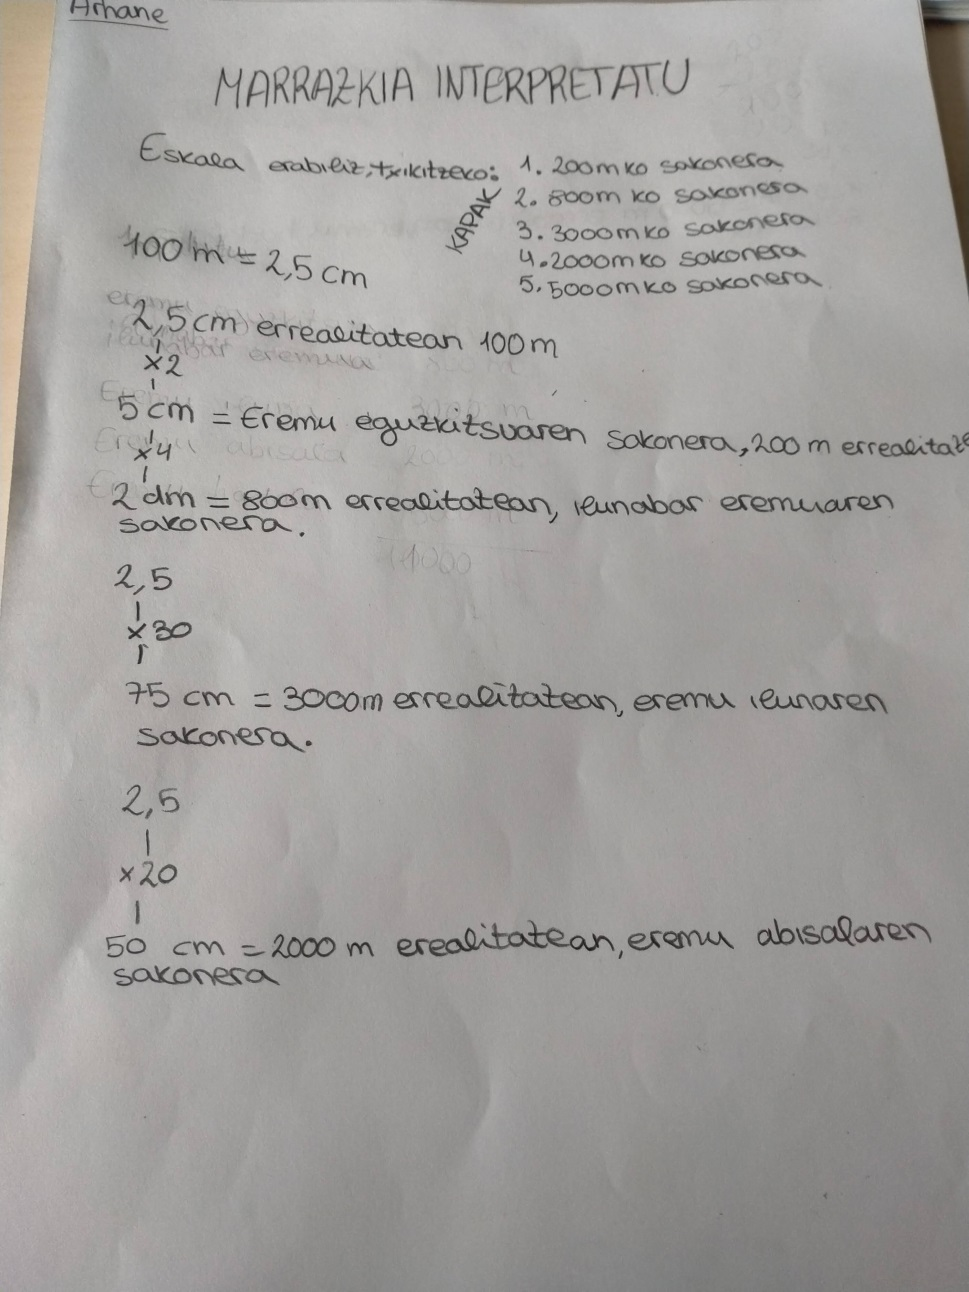 Arhane
MARRAZKIA INTERPRETATU
Eskala erabiliz, txikitzeko: 1. 200m ko sakonera
KAPAK 2. 800m ko sakonera
3. 3000m ko sakonera
4. 2000m ko sakonera
5. 5000m ko sakonera
100 m = 2,5 cm
2,5 cm errealitatean 100 m
x2
5 cm = Eremu eguzkitsuaren sakonera, 200 m errealitate
x4
2 dm = 800m errealitatean, ilunabar eremuaren
sakonera.
2,5
x 30
75 cm = 3000m errealitatean, eremu ilunaren
sakonera.
2,5
x 20
50 cm = 2000 m erealitatean, eremu abisalaren
sakonera